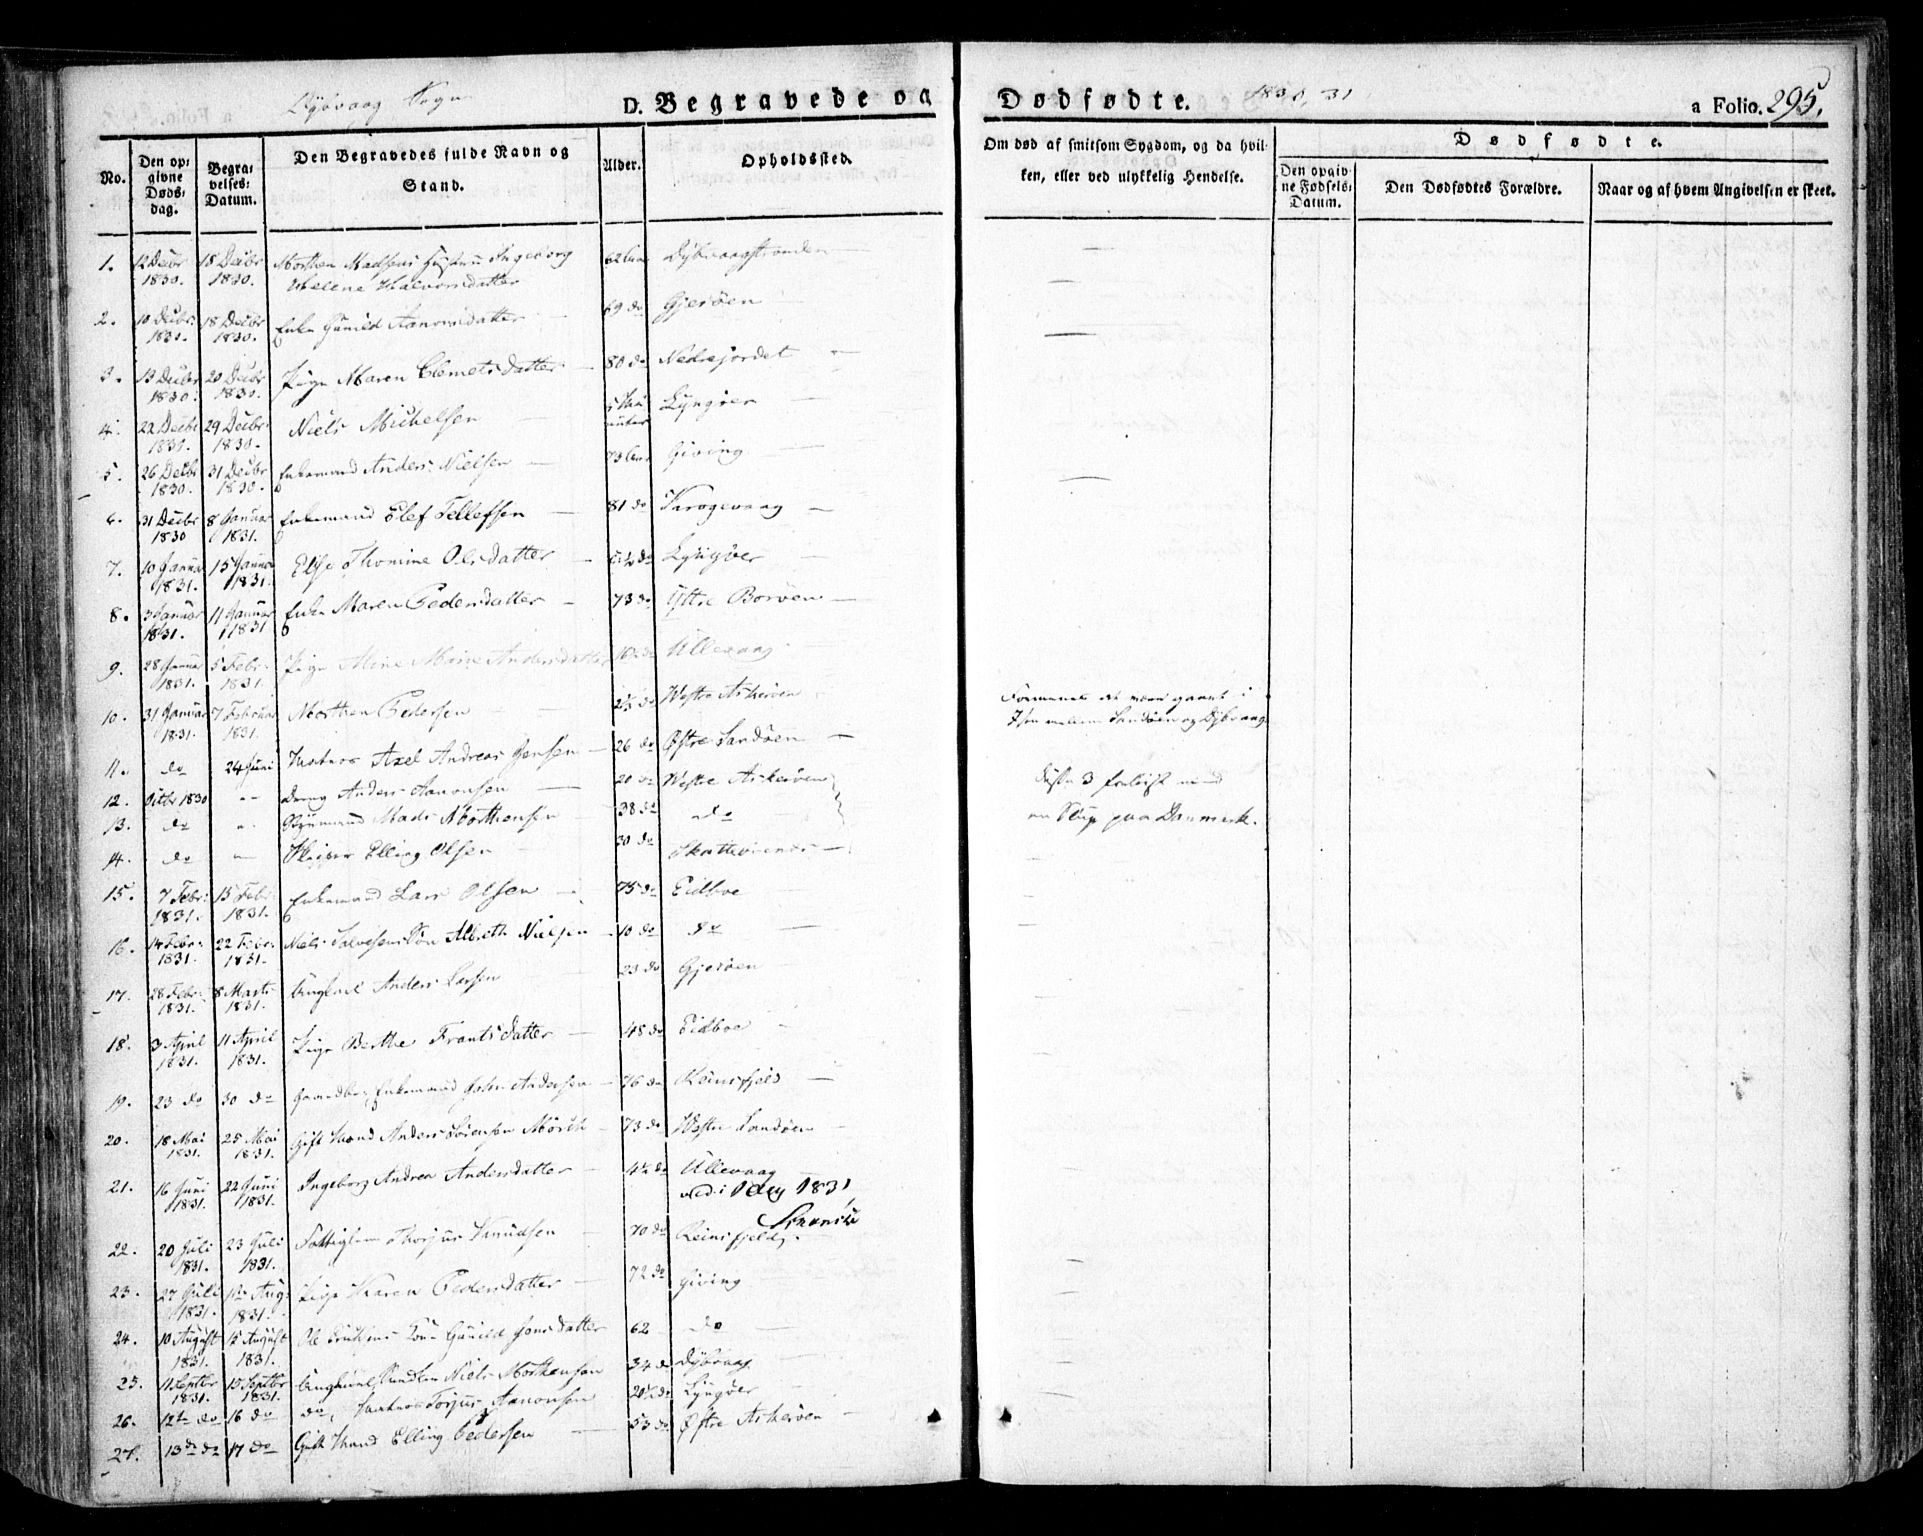 Dybvaag Sogn
D. Begravede og Dødfødte. 1830, 31
a Folio. 295.
No.
Den opgivne Døds-dag.
Begravelses-Datum.
Den Begravedes fulde Navn og Stand.
Alder.
Opholdssted.
Om død af smitsom Sygdom, og da hvil-
ken, eller ved ulykkelig Hendelse.
Dødfødte.
Den opgivne Fødsels-Datum.
Den Dødfødtes Forældre.
Naar og af hvem Angivelsen er skeet.
1. 12 Decbr 1830. 18 Decbr 1830. Morthen Madsens Hustru Ingeborg Helene Halvorsdatter 62 Aar Dybvaagstranden
2. 10 Decbr: 1830. 18 Decbr 1830. Enke Gunild Aanonsdatter 69 do Gjerøen
3. 13 Decbr 1830. 20 Decbr 1830. Pige Maren Clemetsdatter 80 do Nedrejordet
4. 22 Decbr 1830. 29 Decbr: 1830. Niels Michelsen Lyngøer
5. 26 Decbr 1830. 31 Decbr 1830. Enkemand Anders Nielsen 73 Aar Giving
6. 31 Decbr 1830 8 Januar 1831. Enkemand Elef Tellefsen 81 do Krogevaag
7. 10 Januar 1831. 15 Januar 1831. Else Thomine Olsdatter do Lyngøer
8. 3 Januar 1831. 11 Januar 1831 Enke Maren Pedersdatter 73 do Yttre Borøen
9. 28 Januar 1831. 5 Febr: 1831. Pige Aline Marie Andersdatter Ullevaag
10. 31 Januar 1831. 7 Februar 1831. Morthen Pedersen do Westre Askerøen
Formenes at være gaaet i
Isen mellem Sandøen og Dybvaag
11. do 24 Juni Matros Axel Andreas Jensen 26 do Østre Sandøen
12. Octbr 1830 " Dreng Anders Aanonsen 20 do Westre Askerøen
disse 3 forliist med
en Slup paa Danmark.
13. do " Mads Morthensen 38 do do
14. do " Skipper Elling Olsen 30 do
15. 7 Febr: 1831. 15 Febr: 1831. Enkemand Lars Olsen 75 do Eidboe
16. 14 Febr: 1831. 22 Febr: 1831. Niels Salvesens Søn Albreth Nielsen 10 do do
17. 28 Febr: 1831. 8 Marts 1831. Ungkarl Anders Larsen 23 do Gjerøen
18. 3 April 1831. 11 April 1831. Pige Berthe Frantsdatter 48 do Eidboe
19. 23 do 30 do Enkemand John Andersen 76 do Reinsfjeld
20. 18 Mai 1831. 25 Mai 1831. Gift Mand Anders Sørensen Mørch 73 do Westre Sandøen
21. 16 Juni 1831. 22 Juni 1831. Ingeborg Andrea Andersdatter 4½ do Ullevaag
1831
22. 20 Juli 1831. 23 Juli 1831. Fattiglem Thorjus Knudsen 70 do Reinsfjeld.
23. 27 Juli 1831. Aug: 1831. Pige Karen Pedersdatter 72 do Giving
24. 10 August 1831. 15 August 1831. Ole Knudsens Kone Gunild Jonsdatter 62 do
25. 11 Septbr 1831. 15 Septbr 1831. Ungkarl Niels Morthensen 34 do Dybvaag
26. 12te do 16 do do, Matros Torjus Aanonsen 20½ do Lyngøer
27. 13de do 17 do Gift Mand Elling Pedersen 53 do Østre Askerøen